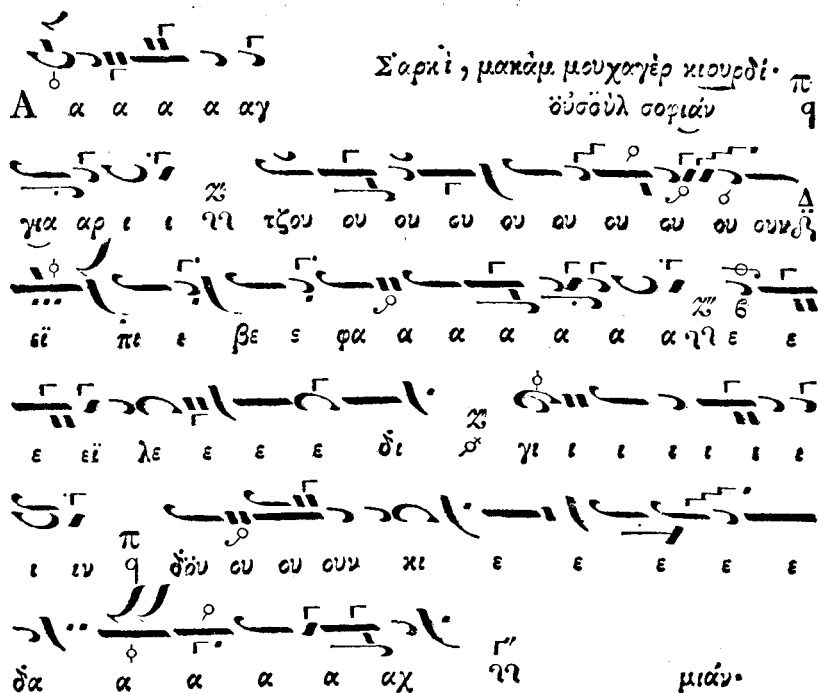 Σαρκὶ, μακὰμ μουχαγὲρ κιουρδί.
οὐσοὺλ σοφιάν
Α α α α α αγ
για αρ ι ι τζου ου ου ου ου ου ου ου ου ουκ
εϊ πι ι βε ε φα α α α α α α α ε ε
ε εϊ λε ε ε ε δι γι ι ι ι ι ι ι
ι ιν δου ου ου ουκ κι ε ε ε ε ε
δα α α α α αχ μιάν.